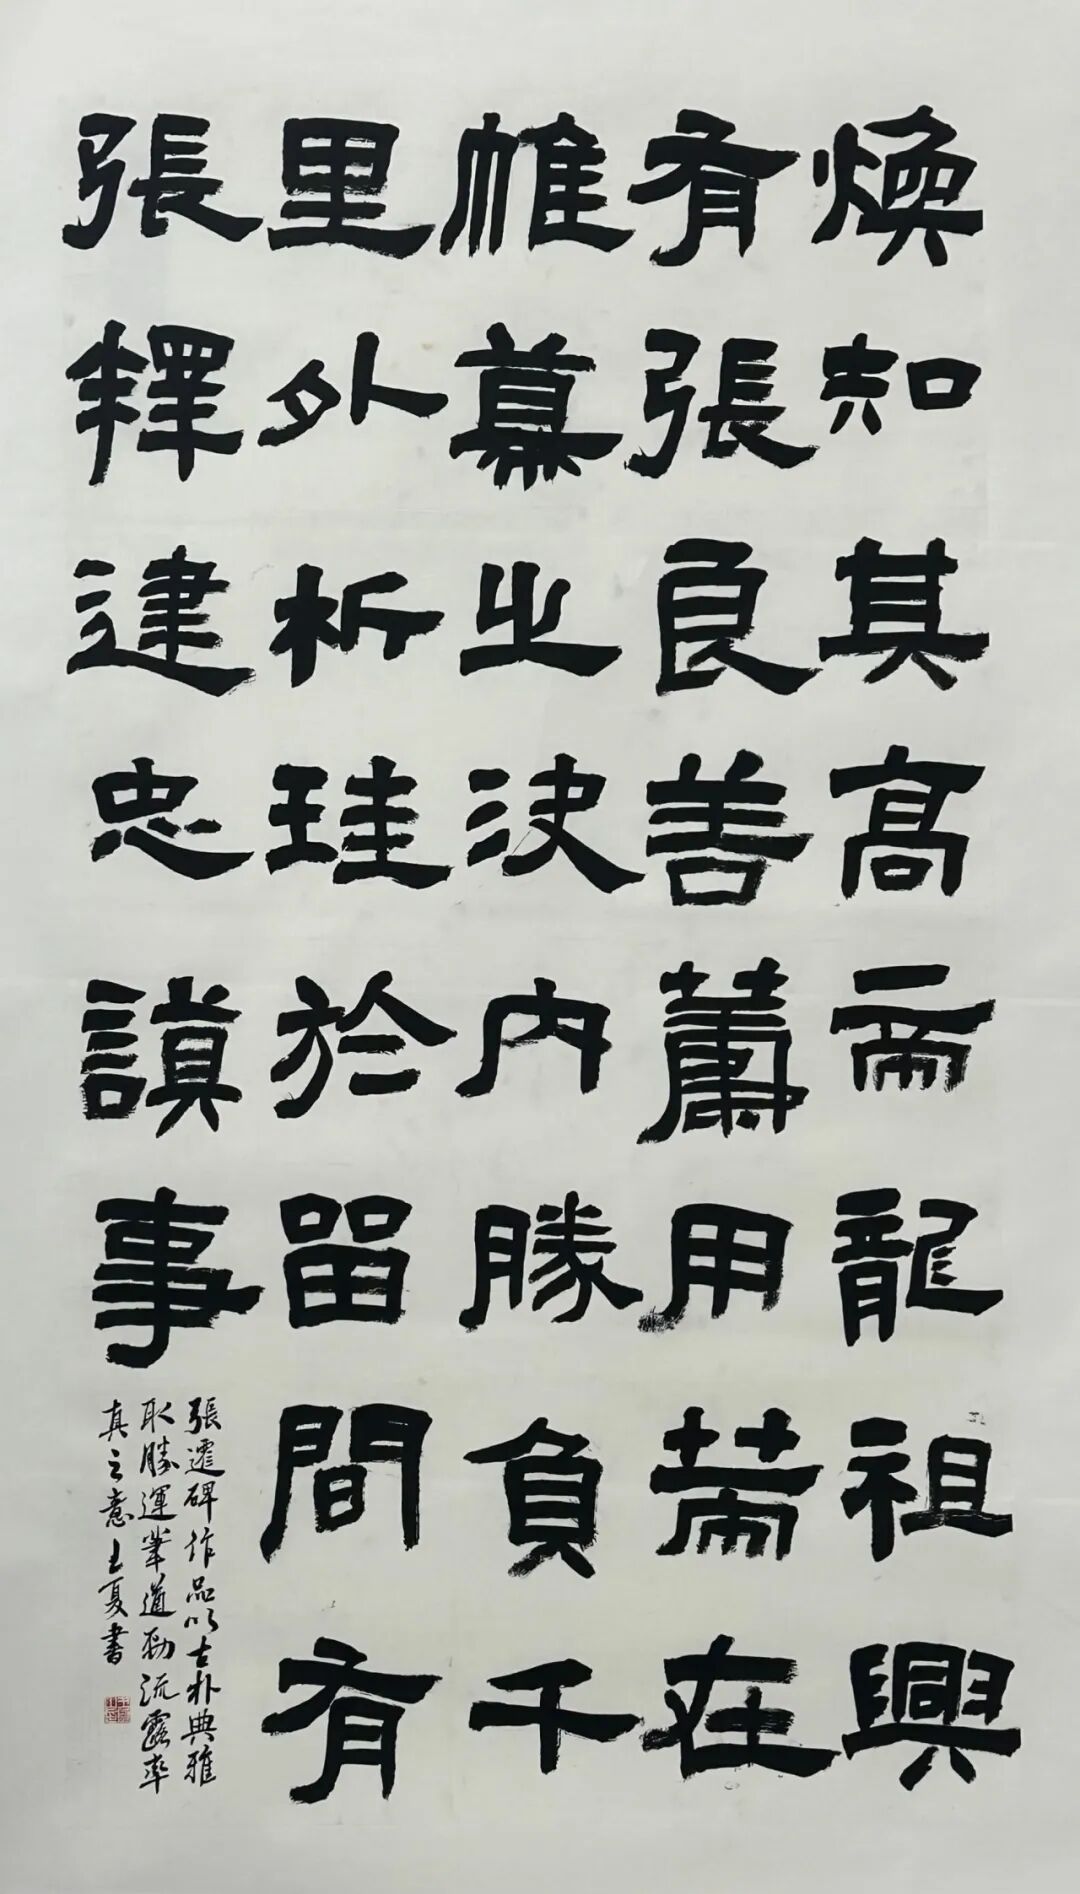 煥知其高帝龍祖興
有張良善籌用策在
帷幕之決內勝負千
里外析珪於留間有
張釋建忠謨事
張遷碑作品以古朴典雅
取勝運筆遒勁流露率
真之意 夏書